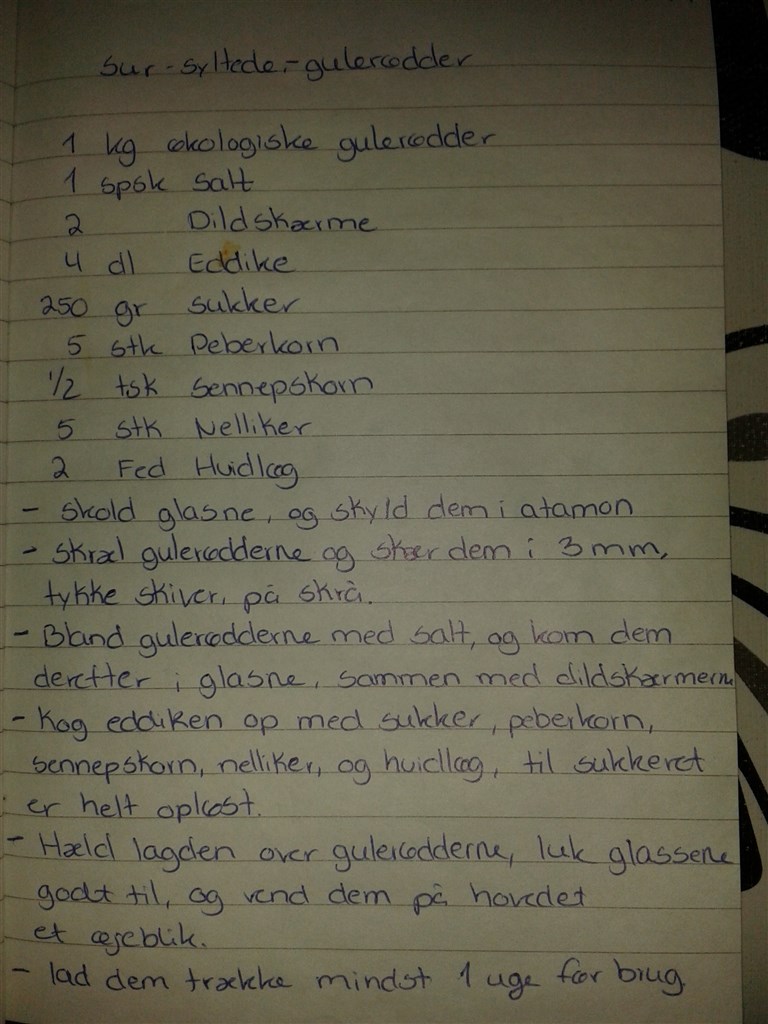 Sur-syltede-gulerødder
1 kg økologiske gulerødder
1 spsk salt
2 Dildskærme
4 dl Eddike
250 gr sukker
5 stk Peberkorn
1/2 tsk Sennepskorn
5 stk Nelliker
2 Fed Hvidløg
- Skold glasne, og skyld dem i atamon
- Skræl gulerødderne og skær dem i 3 mm,
tykke skiver, på skrå.
- Bland gulerødderne med salt, og kom dem
derefter i glasne, sammen med dildskærmerne
- Kog eddiken op med sukker, peberkorn,
sennepskorn, nelliker, og hvidløg, til sukkeret
er helt opløst.
- Hæld lagden over gulerødderne, luk glassene
godt til, og vend dem på hovedet
et øjeblik.
- lad dem trække mindst 1 uge før brug